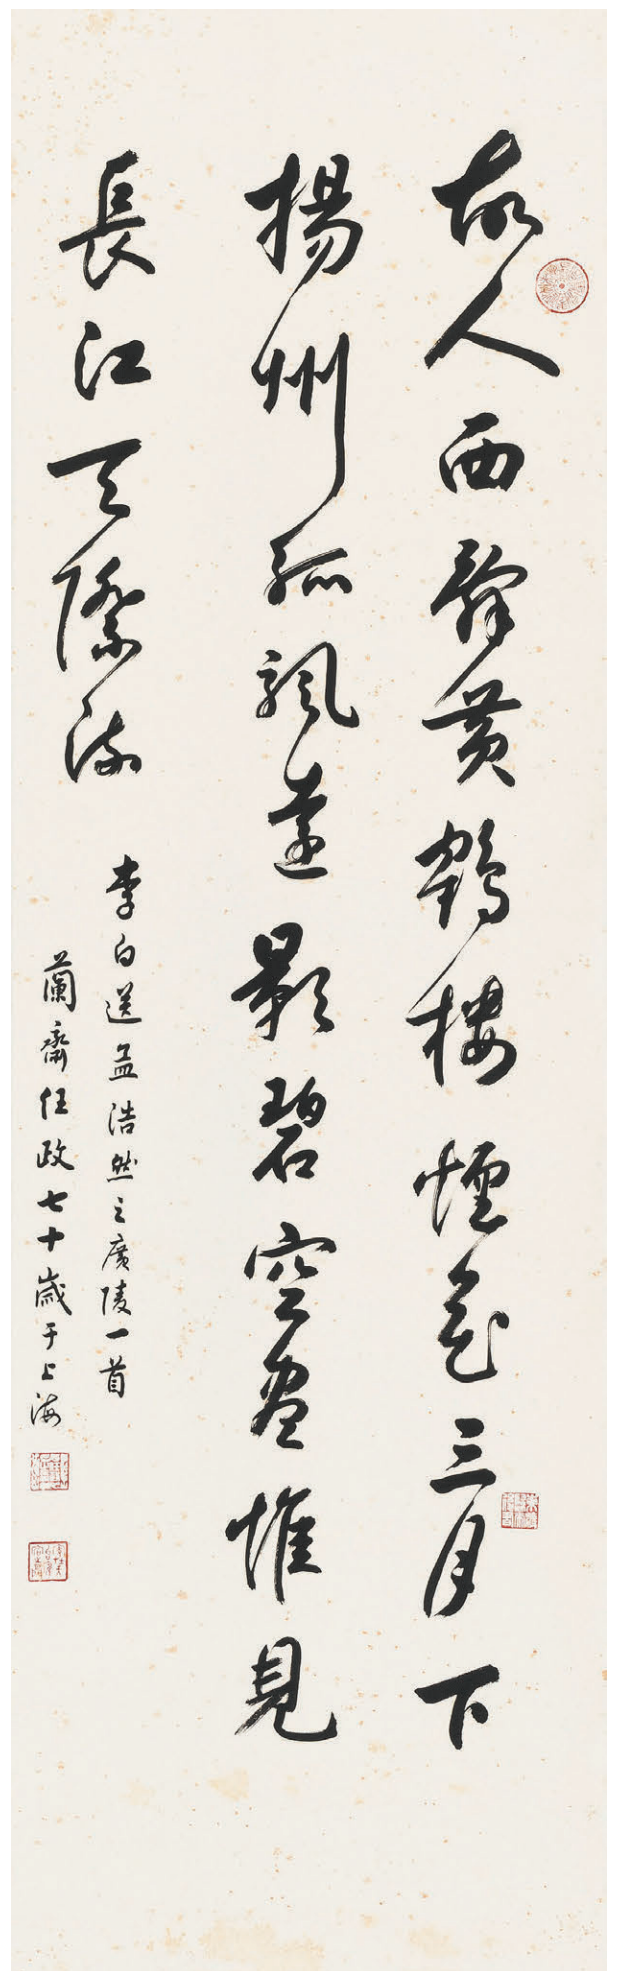 故人西辭黃鶴樓煙花三月下
揚州孤帆遠影碧空盡惟見
長江天際流
李白送孟浩然之廣陵一首
蘭齋任政七十歲于上海